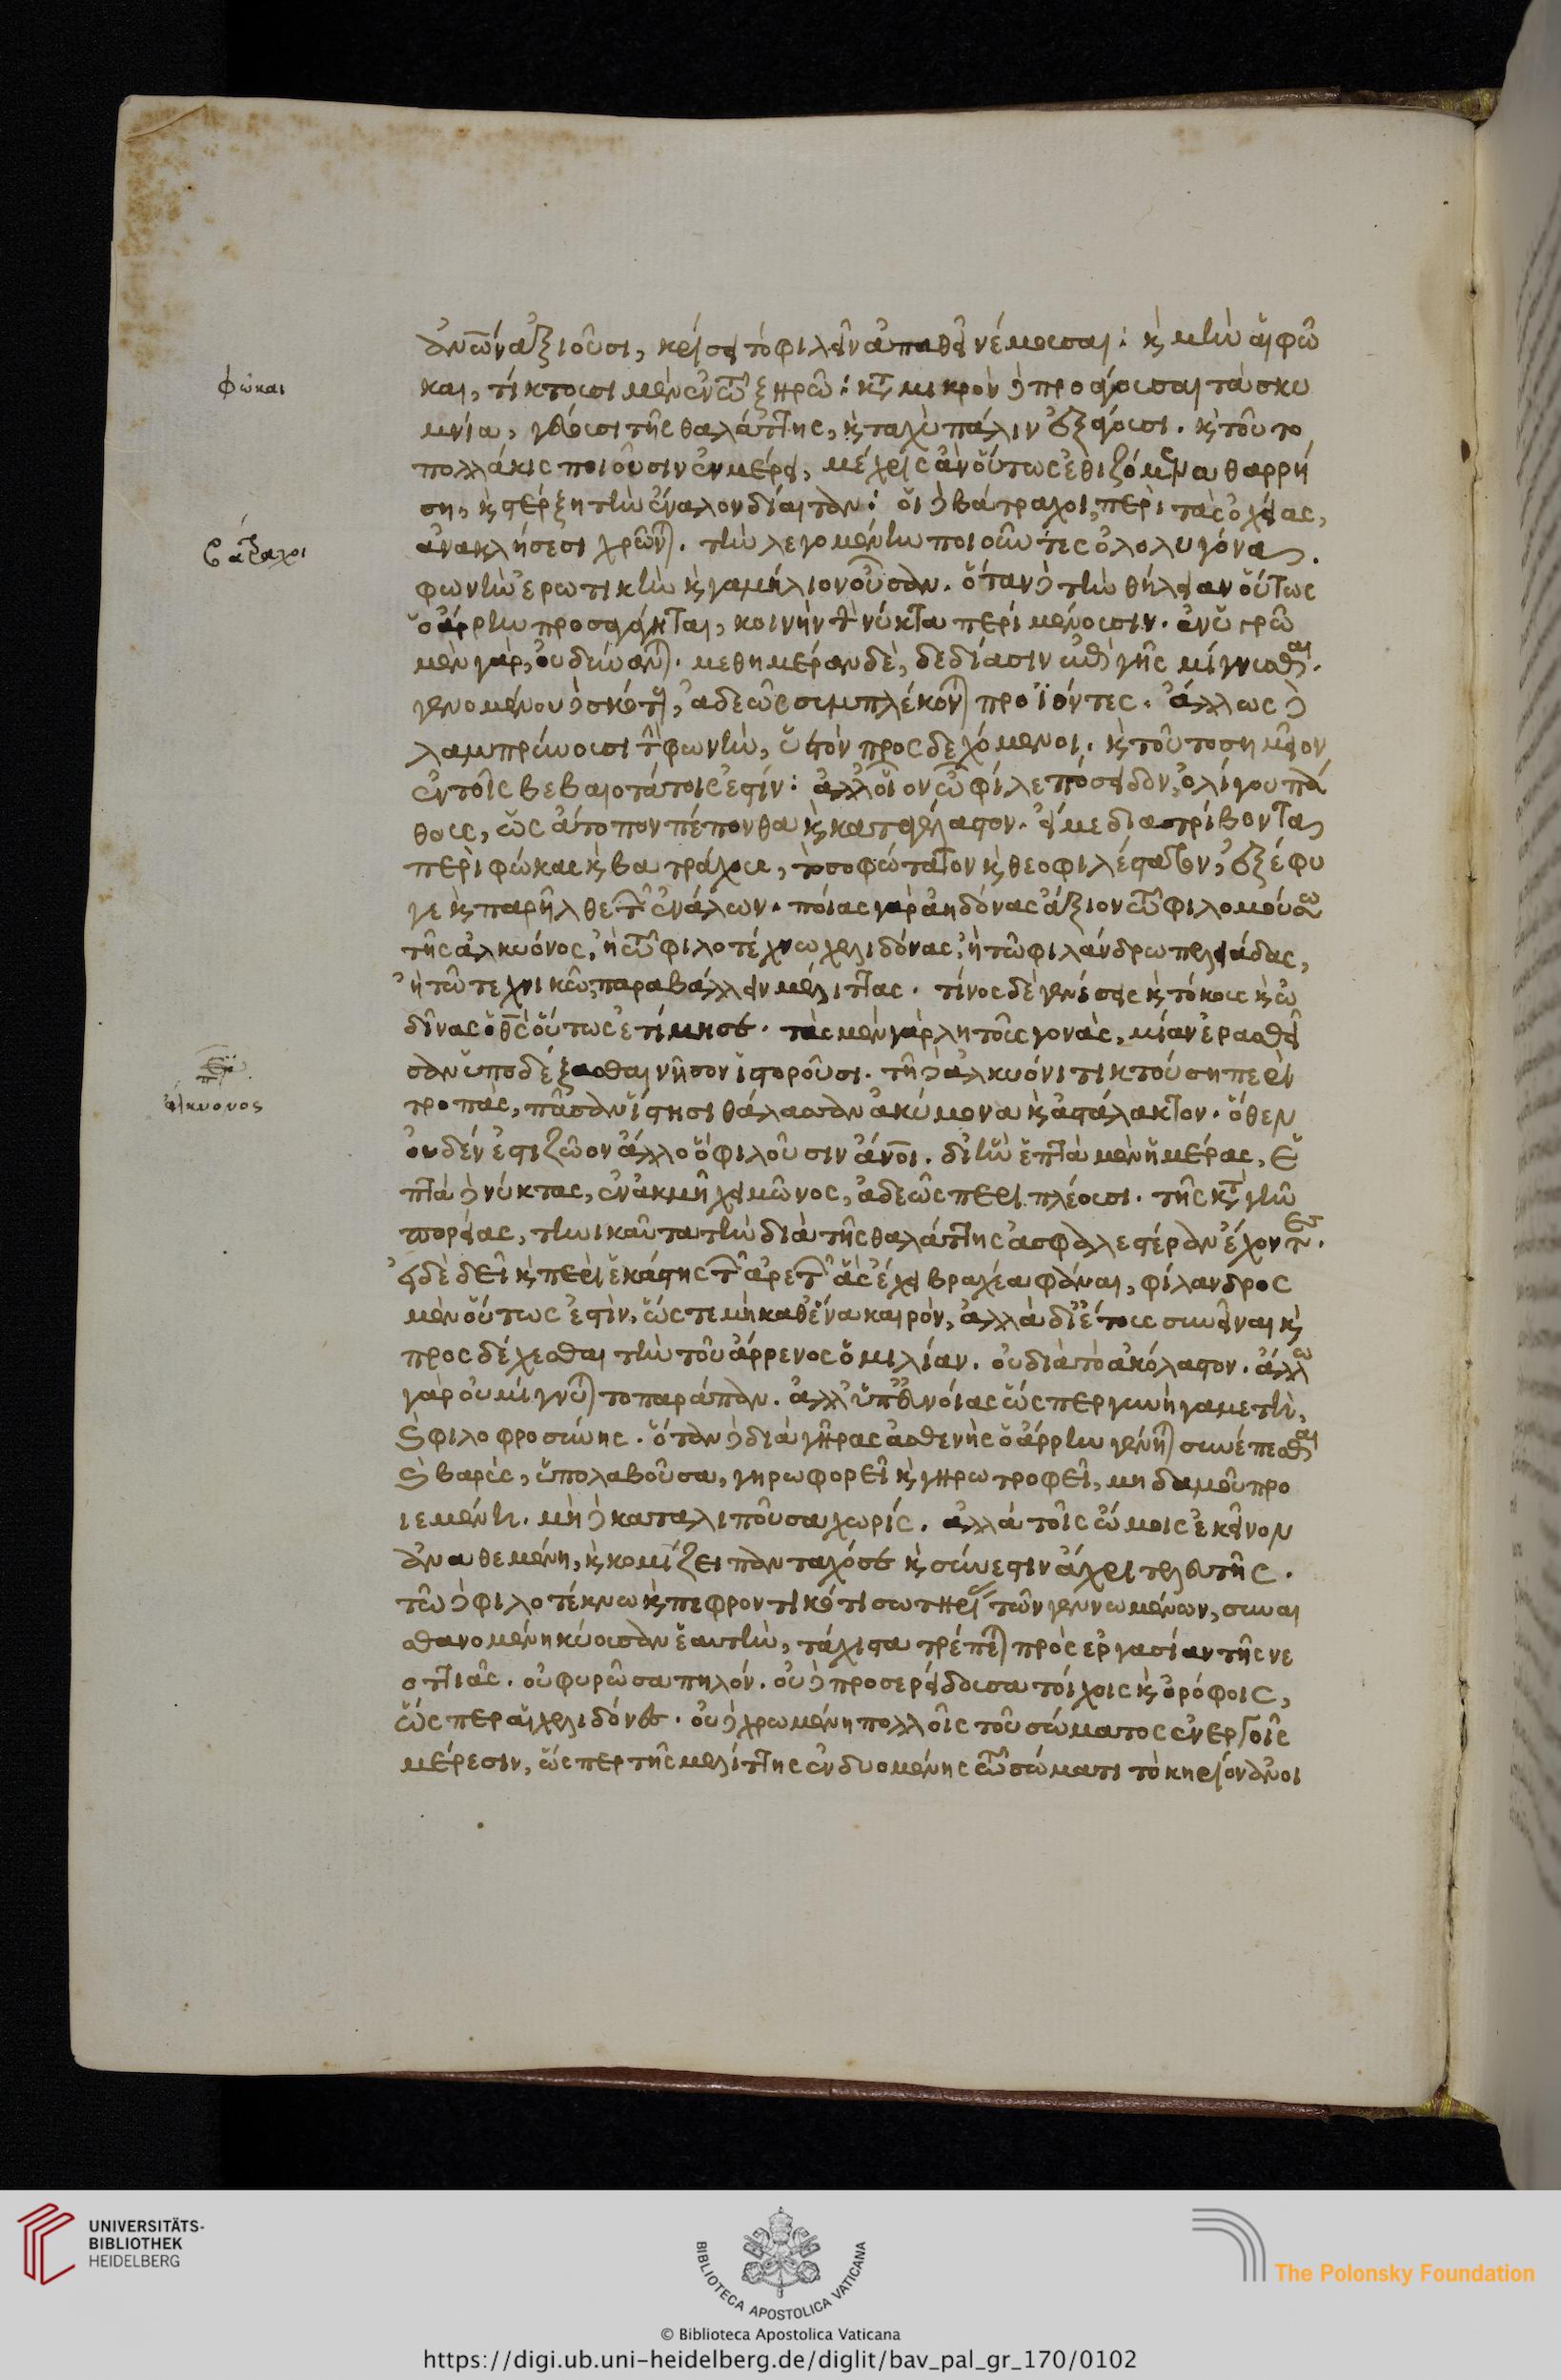 ἀνῶν ἀξιοῦσι, κρίσει τὸ φιλεῖν ἀπαθεῖ νέμουσαι: κ μὴν αἱ φῶ
και, τίκτουσι μὲν ἐν τῶ ξηρῶ: κτ μικρὸν δὲ προάγουσαι τὰ σκυ
μνία, γεύουσι τῆς θαλάττης, κ ταχὺ πάλιν ἐξάγουσι. κ τοῦτο
πολλάκις ποιοῦσιν ἐν μέρει, μέχρις ἂν οὕτως ἐθιζόμενα θαρρή
ση, κ στέρξη τὴν ἔναλον δίαιταν: οἱ δὲ βάτραχοι, περὶ τὰς ὀχείας,
ἀνακλήσεσι χρῶνται. τὴν λεγομένην ποιοῦντες ὀλολυγόνα,
φωνὴν ἐρωτικὴν κ γαμήλιον οὖσαν. ὅταν δὲ τὴν θήλειαν οὕτως
ὁ ἄρρην προσαγάγηται, κοινὴν τὴν νύκτα περιμένουσιν. ἐν ὑγρῶ
μὲν γὰρ, οὐ δύνανται. μεθημέραν δὲ, δεδίασιν ἐπὶ γῆς μίγνυσθαι.
γενομένου δὲ σκότους, ἀδεῶς συμπλέκονται προϊόντες. ἄλλως δὲ
λαμπρύνουσι τὴν φωνὴν, ὑετὸν προσδεχόμενοι. κ τοῦτο σημεῖον
ἐν τοῖς βεβαιοτάτοις ἐστίν: ἀλλ' οἷον ὦ φίλε πόσειδον, ὀλίγου πά
θους, ὡς ἄτοπον πέπονθα κ καταγέλαστον. εἰ με διατρίβοντα
περὶ φώκας κ βατράχους, τὸ σοφώτατον κ θεοφιλέστατον, ἐξέφυ
γε κ παρῆλθε τῶν ἐνάλων. ποίας γὰρ ἀηδόνας ἄξιον τῶ φιλομούσω
τῆς ἀλκυόνος, ἢ τῶ φιλοτέχνω χελιδόνας, ἢ τῶ φιλάνδρω πελειάδας,
ἢ τῶ τεχνικῶ, παραβάλλειν μελίττας. τίνος δὲ γενέσεις κ τόκους κ ὠ
δῖνας ὁ θς οὕτως ἐτίμησε. τὰς μὲν γὰρ λητοῦς γονὰς, μίαν ἑρασθεῖ
σαν ὑποδέξασθαι νῆσον ἱστοροῦσι. τῆ δὲ ἀλκυόνι τικτούση περὶ
τροπὰς, πᾶσαν ἵστησι θάλασσαν ἀκύμονα κ ἀστάλακτον. ὅθεν
οὐδέν ἐστι ζῶον ἄλλο ὃ φιλοῦσιν ἄνοι. δι' ἣν ἑπτὰ μὲν ἡμέρας, ἑ
πτὰ δὲ νύκτας, ἐν ἀκμῆ χειμῶνος, ἀδεῶς περιπλέουσι. τῆς κτ γῆν
πορείας, τηνικαῦτα τὴν διὰ τῆς θαλάττης ἀσφαλεστέραν ἔχοντες.
εἰ δὲ δεῖ κ περὶ ἑκάστης τῶν ἀρετῶν ἃς ἔχει βραχέα φάναι, φίλανδρος
μὲν οὕτως ἐστὶν, ὥς τε μὴ καθ' ἕνα καιρὸν, ἀλλὰ δι' ἔτους συνεῖναι κ
προσδέχεσθαι τὴν τοῦ ἄρρενος ὁμιλίαν. οὐ διὰ τὸ ἀκόλαστον. ἄλλω
γὰρ οὐ μίγνυται τοπαράπαν. ἀλλ' ὑπ' εὐνοίας ὥσπερ γυνὴ γαμετὴ,
κ φιλοφροσύνης. ὅταν δὲ διὰ γῆρας ἀσθενὴς ὁ ἄρρην γένηται συνέπεσθαι
κ βαρὺς, ὑπολαβοῦσα, γηρωφορεῖ κ γηρωτροφεῖ, μηδαμοῦ προ
ιεμένη. μὴ δὲ καταλιποῦσα χωρίς. ἀλλὰ τοῖς ὤμοις ἐκεῖνον
ἀναθεμένη, κ κομίζει πανταχόσε κ σύνεστιν ἄχρι τελευτῆς.
τῶ δὲ φιλοτέκνω κ πεφροντικότι σωτηρίας τῶν γεννωμένων, συναι
σθανομένη κύουσαν ἑαυτὴν, τάχιστα τρέπεται πρὸς ἐργασίαν τῆς νε
οττιᾶς. οὐ φυρῶσα πηλόν. οὐδὲ προσερείδουσα τοίχοις κ ὀρόφοις,
ὥσπερ αἱ χελιδόνες. οὐδὲ χρωμένη πολλοῖς τοῦ σώματος ἐνεργοῖς
μέρεσιν, ὥσπερ τῆς μελίττης ἐνδυομένης τῶ σώματι τὸ κηρίον ἀνοι
φώκαι
βάτραχοι
ἀλκυονος
UNIVERSITÄTS-
BIBLIOTHEK
HEIDELBERG
BIBLIOTECA APOSTOLICA VATICANA
The Polonsky Foundation
© Biblioteca Apostolica Vaticana
https://digi.ub.uni-heidelberg.de/diglit/bav_pal_gr_170/0102